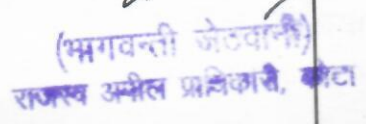 (भागवन्ती जेठवानी)
राजस्व अपील प्राधिकारी, कोटा